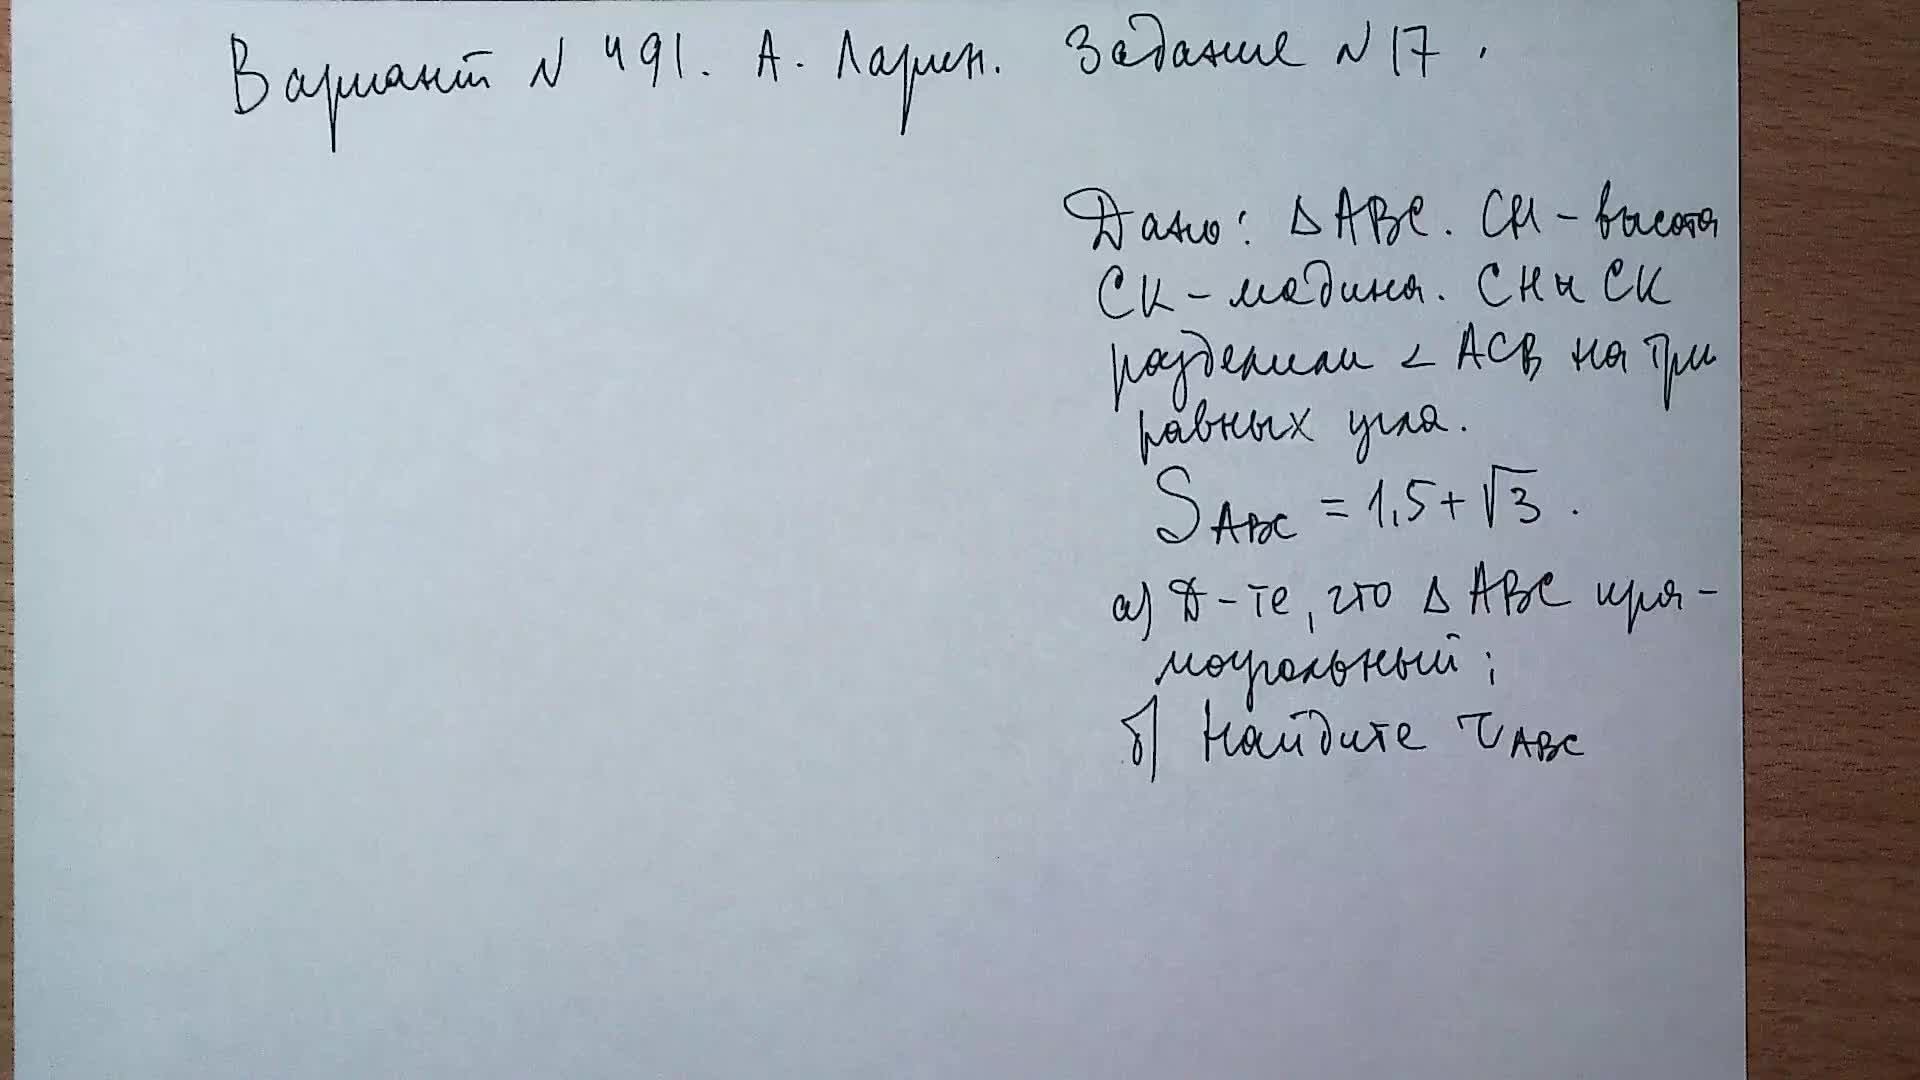 Вариант N 491. А. Ларин. Задание N 17.
Дано: Δ ABC. CH – высота
CK – медиана. CH и CK
разделили ∠ ACB на три
равных угла.
S ABC = 1,5 + √3.
а) Д-те, что Δ ABC пря-
моугольный;
б) Найдите r ABC